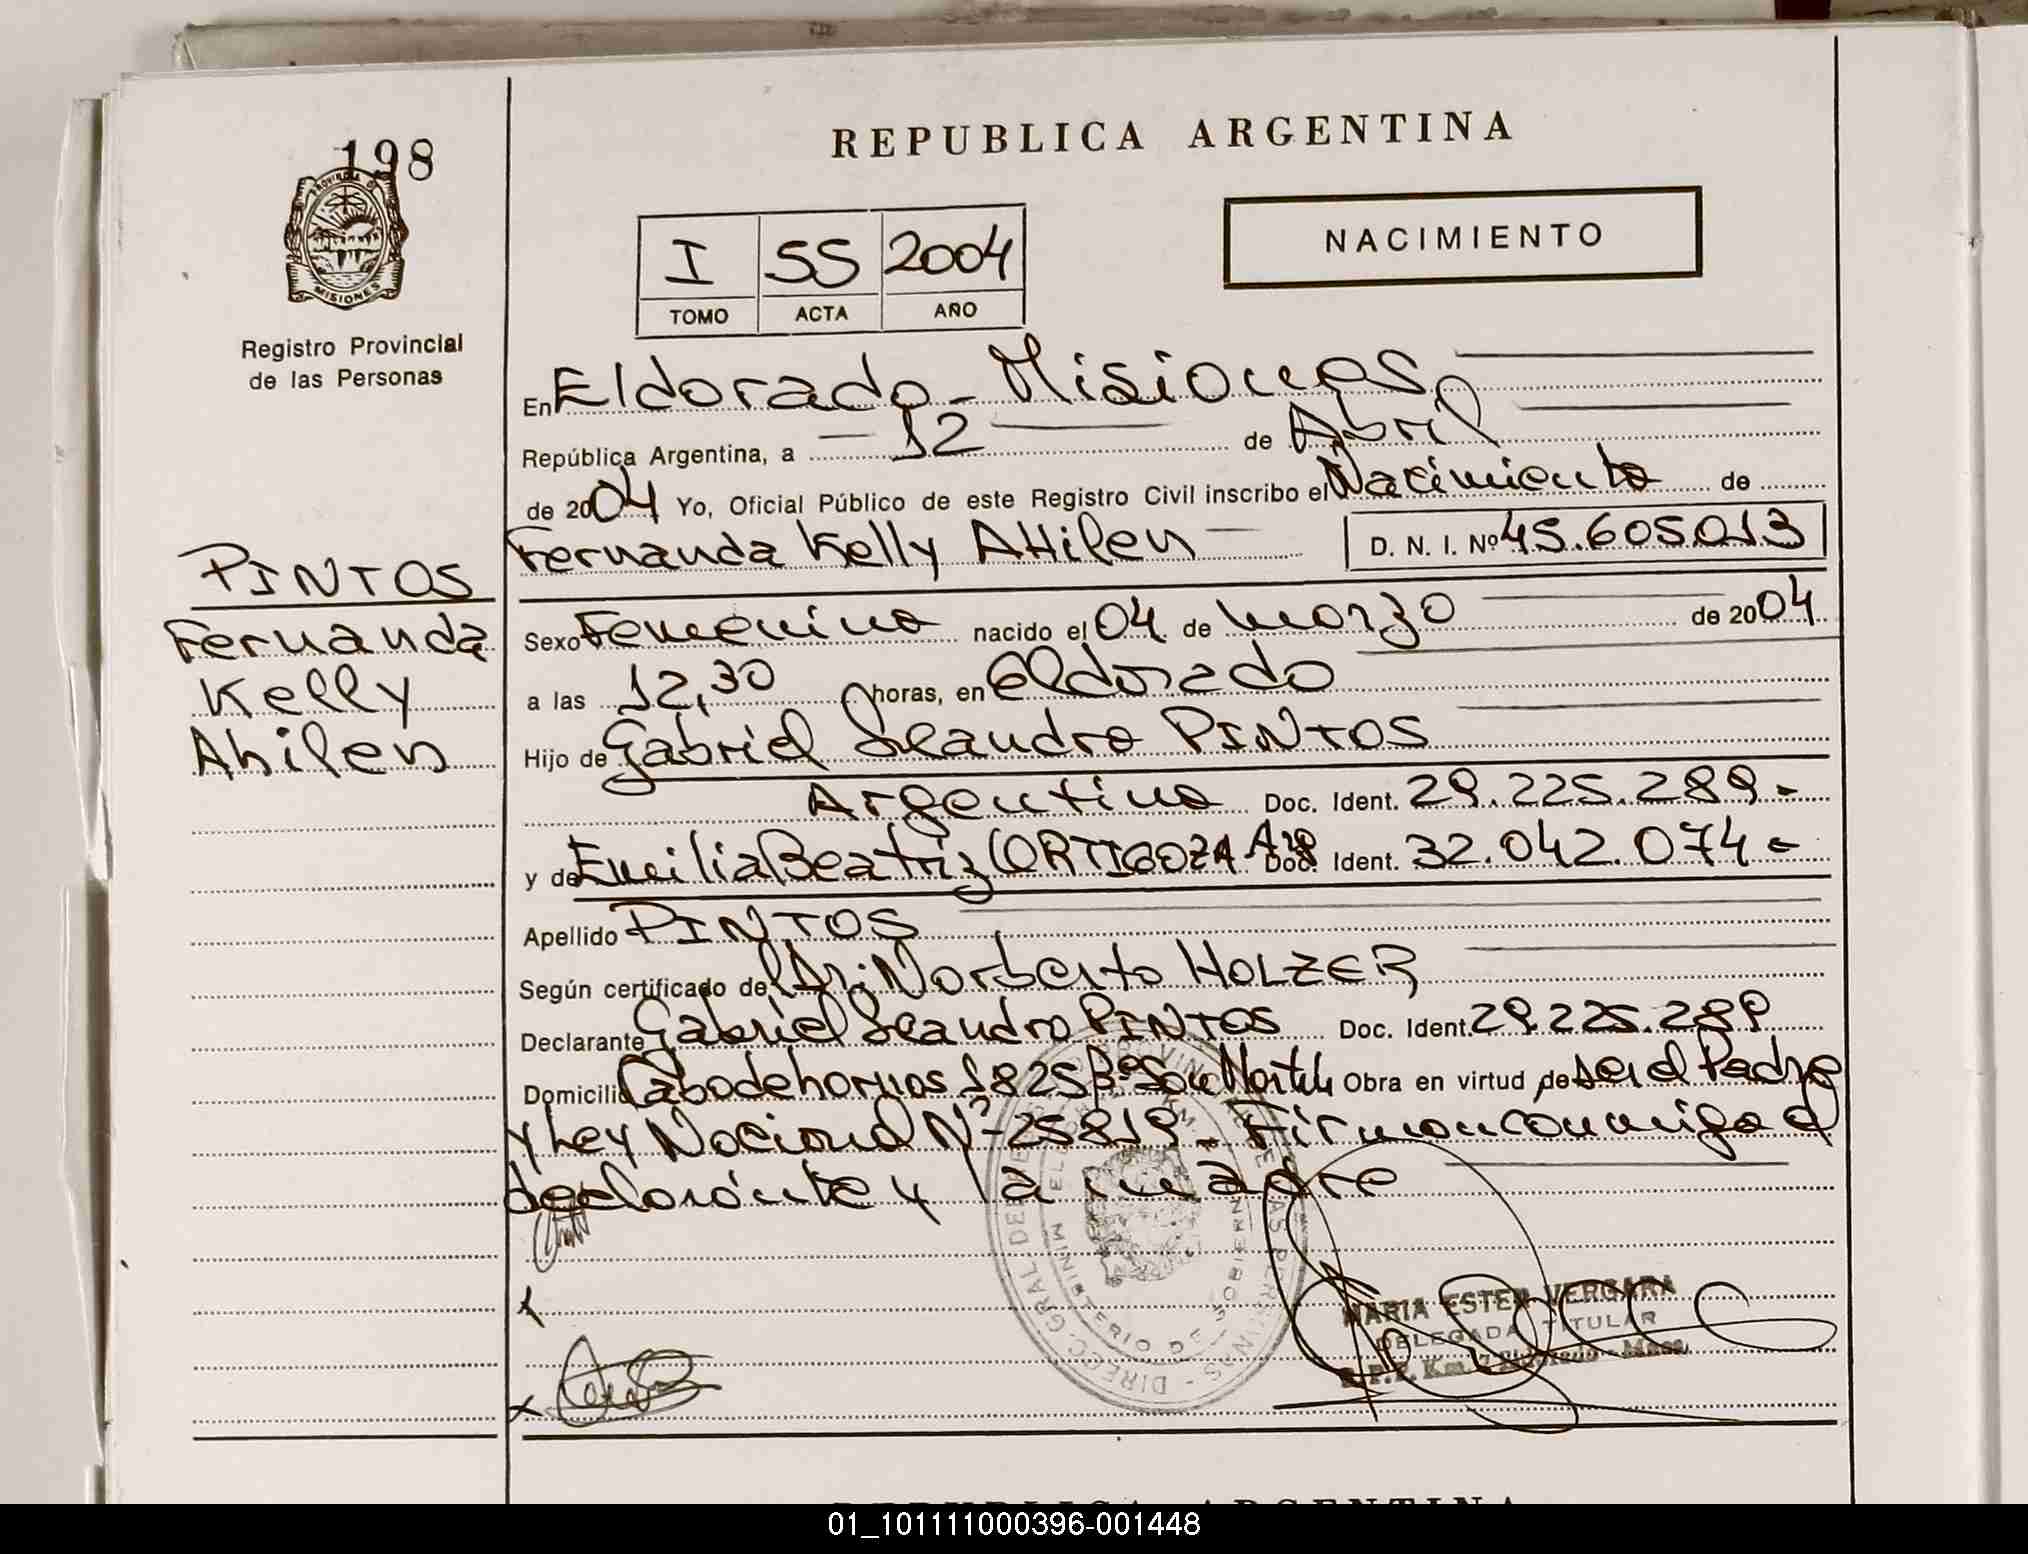 198
PROVINCIA DE
MISIONES
Registro Provincial
de las Personas
REPUBLICA ARGENTINA
NACIMIENTO
I 55 2004
TOMO ACTA AÑO
En Eldorado - Misiones
República Argentina, a 12 de Abril
de 2004 Yo, Oficial Público de este Registro Civil inscribo el Nacimiento de
Fernanda Kelly Ahilen D. N. I. Nº 45.605.013
PINTOS
Fernanda
Kelly
Ahilen
Sexo Femenino nacido el 04 de marzo de 2004
a las 12,30 horas, en Eldorado
Hijo de Gabriel Leandro PINTOS
Argentino Doc. Ident. 29.225.289.-
y de Emilia Beatriz ORTIGOZA Arg Doc. Ident. 32.042.074-
Apellido PINTOS
Según certificado de Dr. Norberto HOLZER
Declarante Gabriel Leandro PINTOS Doc. Ident. 29.225.289
Domicilio Cabo de hornos 1825 Bº San Martin Obra en virtud de ser el Padre
y Ley Nacional Nº 25819 - Firman conmigo el
declarante y la madre
MARIA ESTER VERGARA
DELEGADA TITULAR
R.P.P. Km. 7 Eldorado - Mnes.
REPUBLICA ARGENTINA
01_101111000396-001448